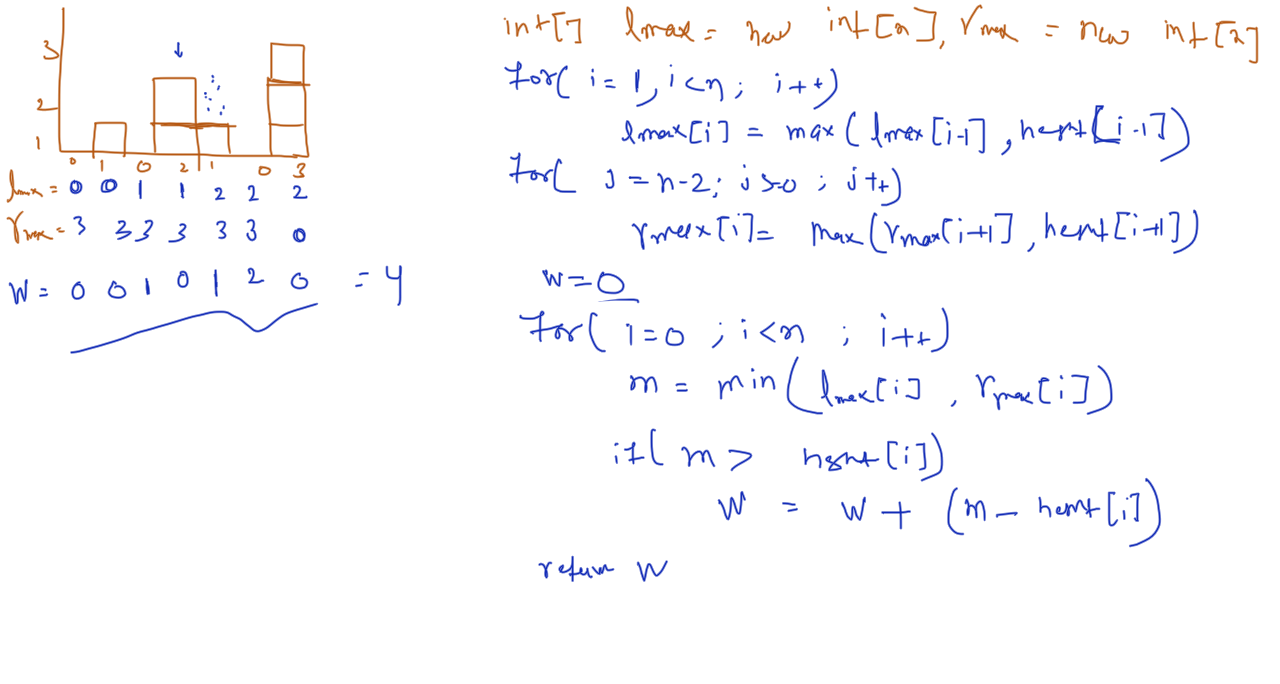 3
2
1
0 1 0 2 1 0 3
lmax = 0 0 1 1 2 2 2
rmax = 3 3 3 3 3 3 0
W = 0 0 1 0 1 2 0 = 4
int[] lmax = new int[n], rmax = new int[n]
for( i = 1, i<n; i++)
lmax[i] = max( lmax[i-1], height[i-1])
for( j = n-2; j>=0; j++)
rmax[i] = max(rmax[i+1], height[i+1])
w=0
for( i=0 ; i<n ; i++)
m = min( lmax[i] , rmax[i])
if( m > height[i])
W = W + (m - height[i])
return W